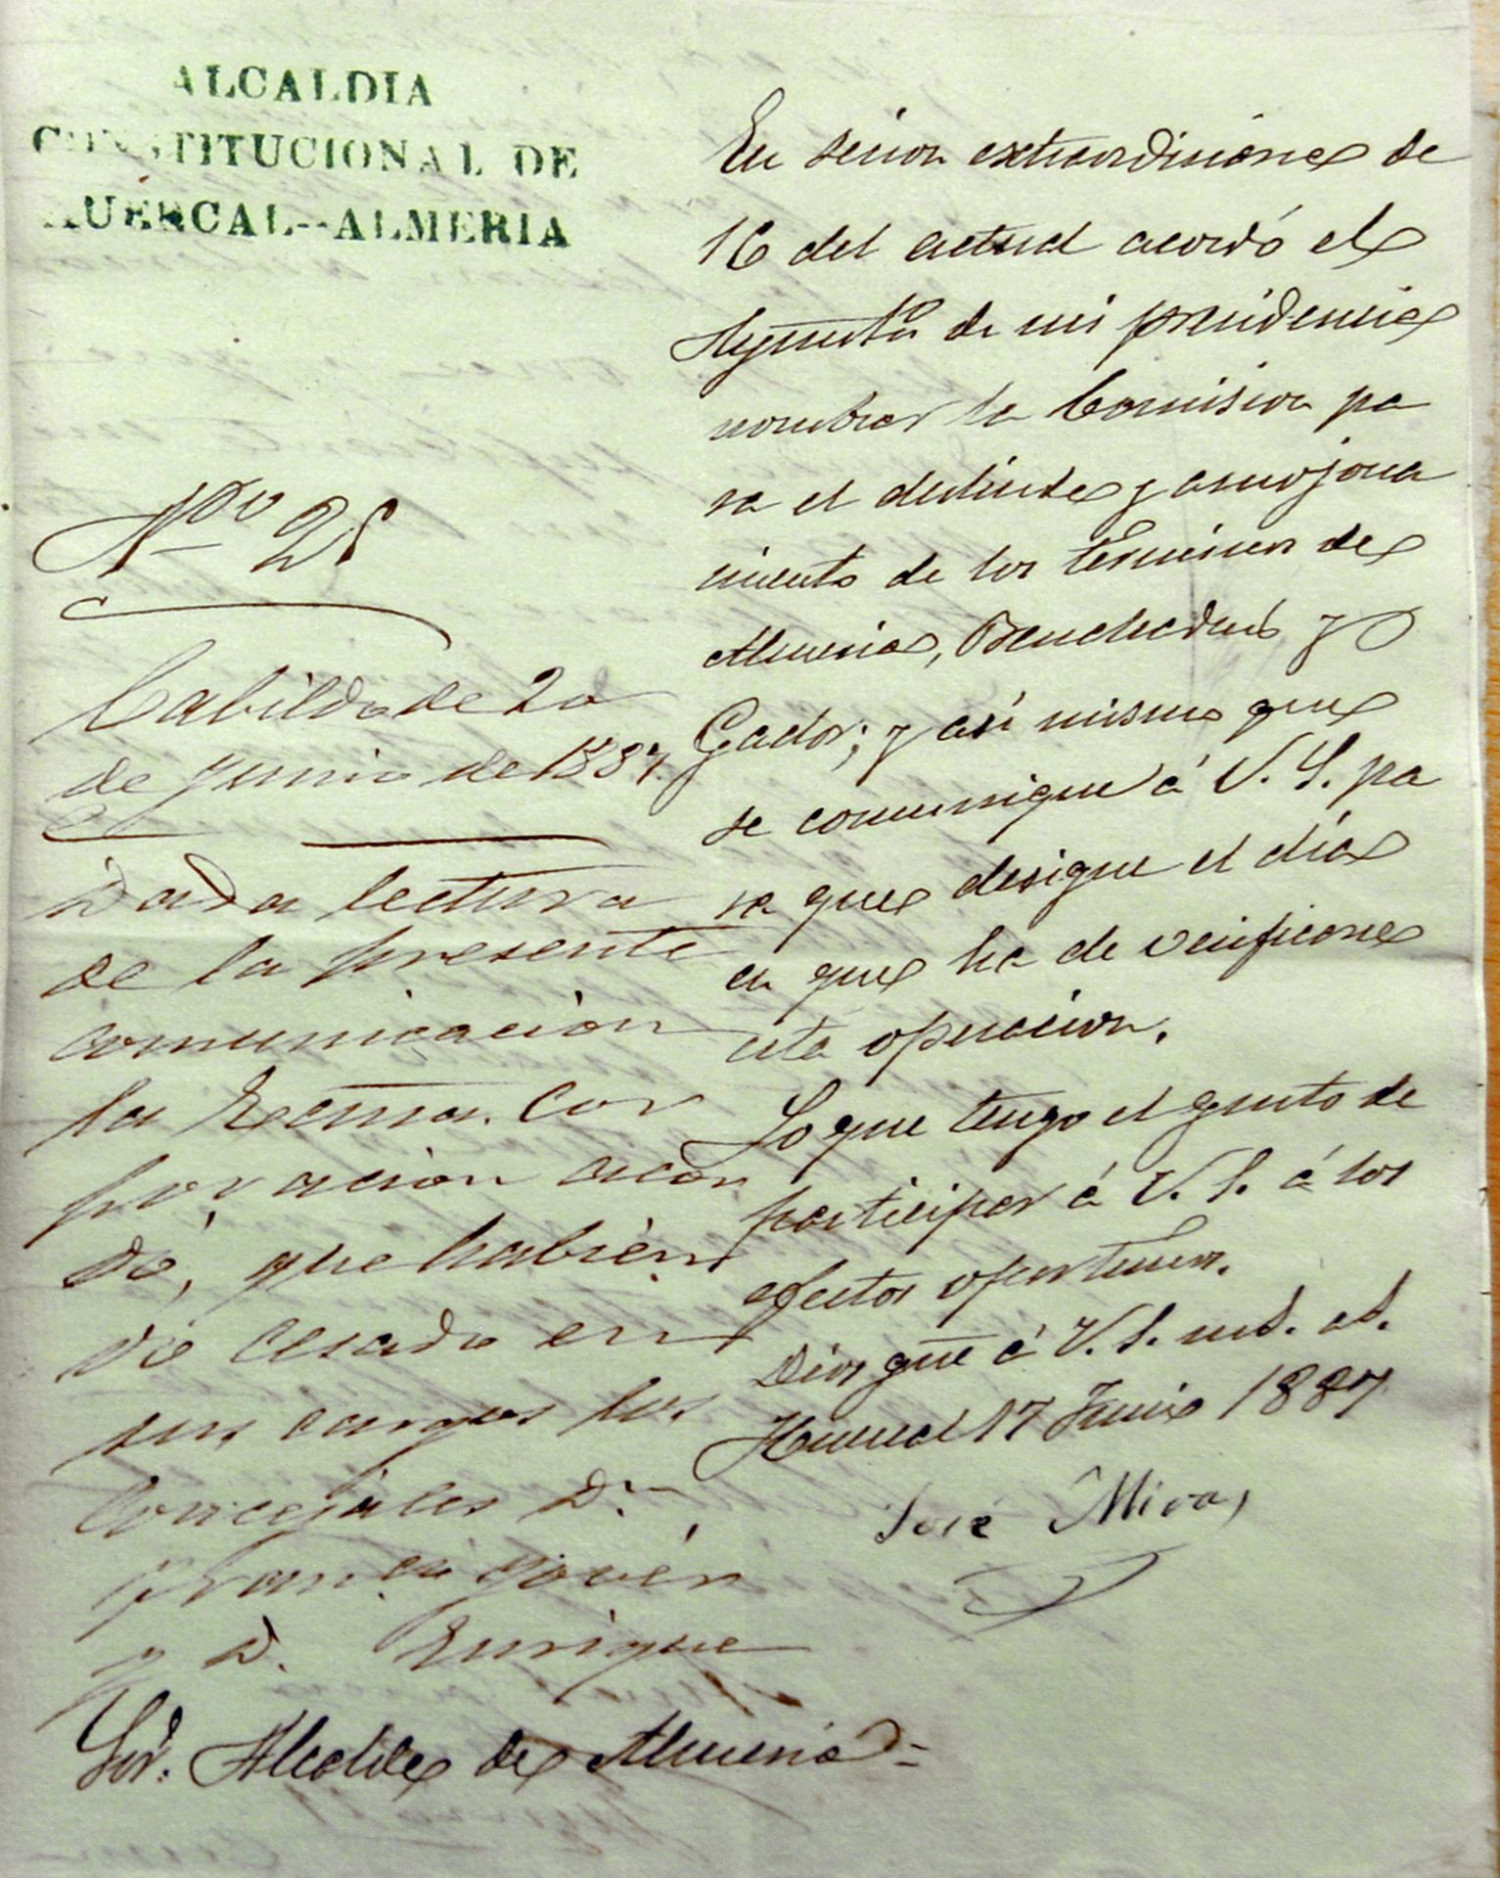 ALCALDIA
CONSTITUCIONAL DE
HUERCAL--ALMERIA
Nº
Cabildo de 20
de Junio de 1887.
Dada lectura
de la presente
comunicación
la Excma. Cor
poración acor
dó, que habién
do cesado en
sus cargos los
Concejales D.
Franco. Jovér
y D. Enrique
En sesion extraordinaria de
16 del actual acordó el
Aymto. de mi presidencia
nombrar la Comision pa
ra el deslinde y amojona
miento de los términos de
Almeria, Benahadux y
Gador; y asi mismo que
se comunique á V. S. pa
ra que designe el dia
en que ha de verificarse
esta operacion.
Lo que tengo el gusto de
participar á V. S. á los
efectos oportunos.
Dios gue á V. S. ms. as.
Huercal 17 Junio 1887
José Miras
Sor. Alcalde de Almeria=